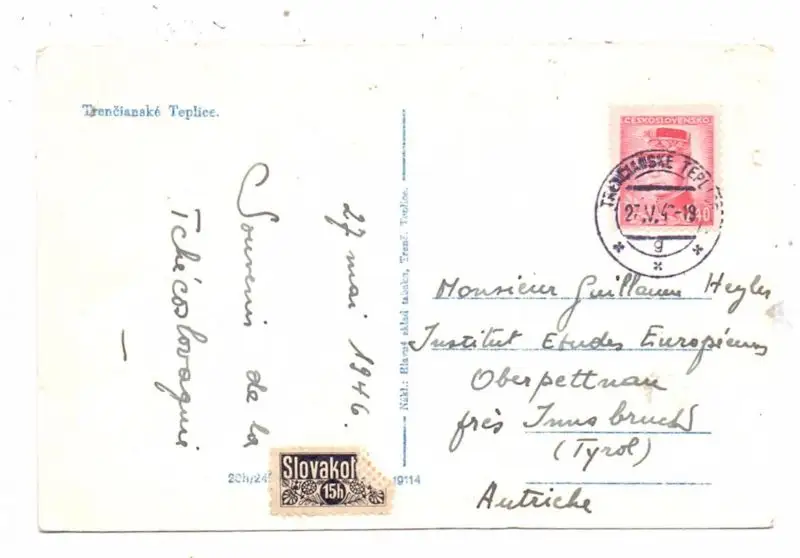 Trenčianské Teplice.
27 mai 1946.
Souvenir de la
Tchécoslovaquie
—
Nákl.: Hlavný sklad tabaku, Trenč. Teplice.
20h/24
19114
Slovakot
15h
ČESKOSLOVENSKO
40
TRENČIANSKE TEPL
27.V.4 -19
g
Monsieur Guillaume
Institut Etudes Européennes
Oberpettnau
près Innsbruck
(Tyrol)
Autriche